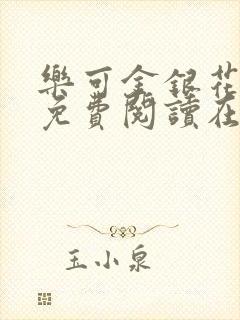 樂可金銀花
免費閱讀在
玉小泉